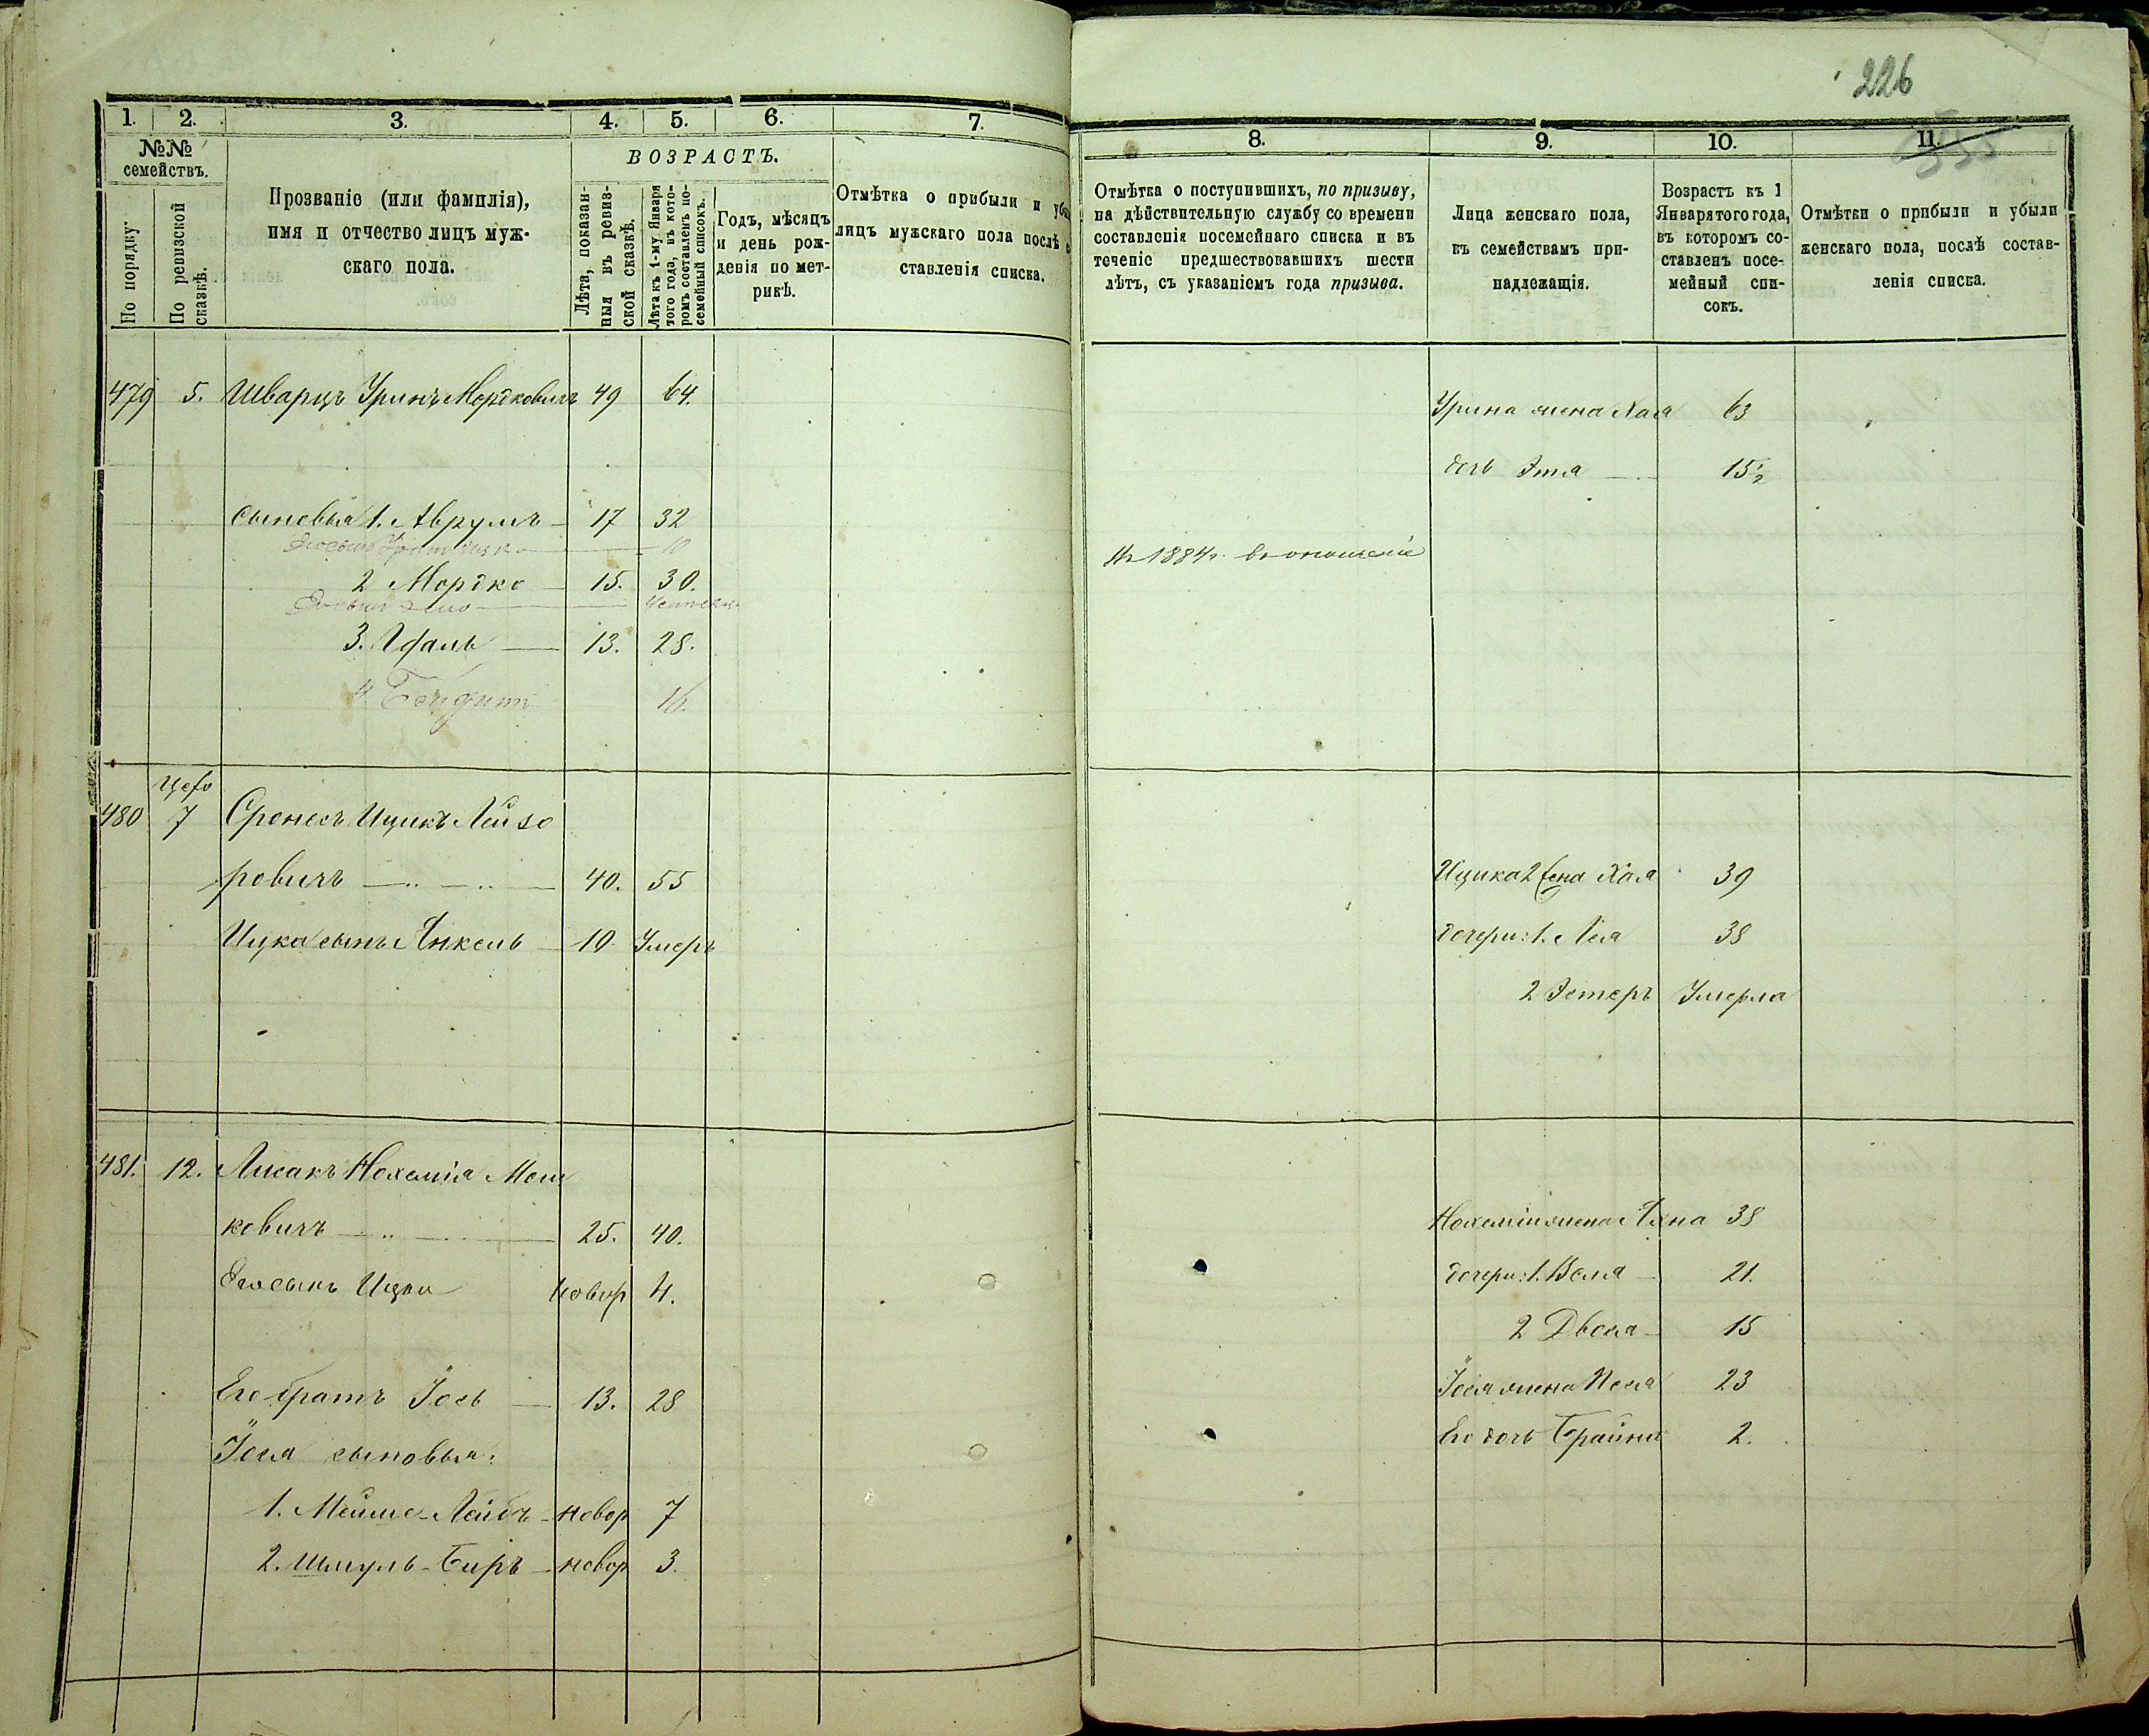 226
1. 2. 3. 4. 5. 6. 7.
№№ семействъ.
По порядку.
По ревизской сказкѣ.
Прозваніе (или фамилія),
имя и отчество лицъ муж-
скаго пола.
ВОЗРАСТЪ.
Лѣта, показан-
ныя въ ревиз-
ской сказкѣ.
Лѣта къ 1-му Января
того года, въ кото-
ромъ составленъ по-
семейный списокъ.
Годъ, мѣсяцъ
и день рож-
денія по мет-
рикѣ.
Отмѣтка о прибыли и
лицъ мужскаго пола послѣ
ставленія списка.
8. 9. 10. 11.
Отмѣтка о поступившихъ, по призыву,
на дѣйствительную службу со времени
составленія посемейнаго списка и въ
теченіе предшествовавшихъ шести
лѣтъ, съ указаніемъ года призыва.
Лица женскаго пола,
къ семействамъ при-
надлежащія.
Возрастъ къ 1
Января того года,
въ которомъ со-
ставленъ посе-
мейный спи-
сокъ.
Отмѣтки о прибыли и убыли
женскаго пола, послѣ состав-
ленія списка.
479 5. Шварцъ Уринъ Мордковичъ 49 64.
сыновья 1. Аврумъ 17 32
10
2 Мордко 15. 30.
3. 13. 28.
4 16.
Урина жена Хая 63
дочь Этля 15½
1884г.
480 7 Ицикъ Лейзо
ровичъ 40. 55
Ицка сынъ Янкель 10 Умеръ
Ицика 2 жена Хая 39
дочери: 1. Лея 38
2 Эстеръ Умерла
481. 12. Лисакъ Нохемія Мош
ковичъ 25. 40.
Его сынъ новор 4.
Его братъ Іось 13. 28
Іося сыновья:
1. Мейше-Лейбъ новор 7
2. Шмуль-Беръ новор 3.
Нохеміи жена 38
дочери: 1. Бейля 21.
2 Двося 15
Іося жена Песя 23
Его дочь Брайна 2.